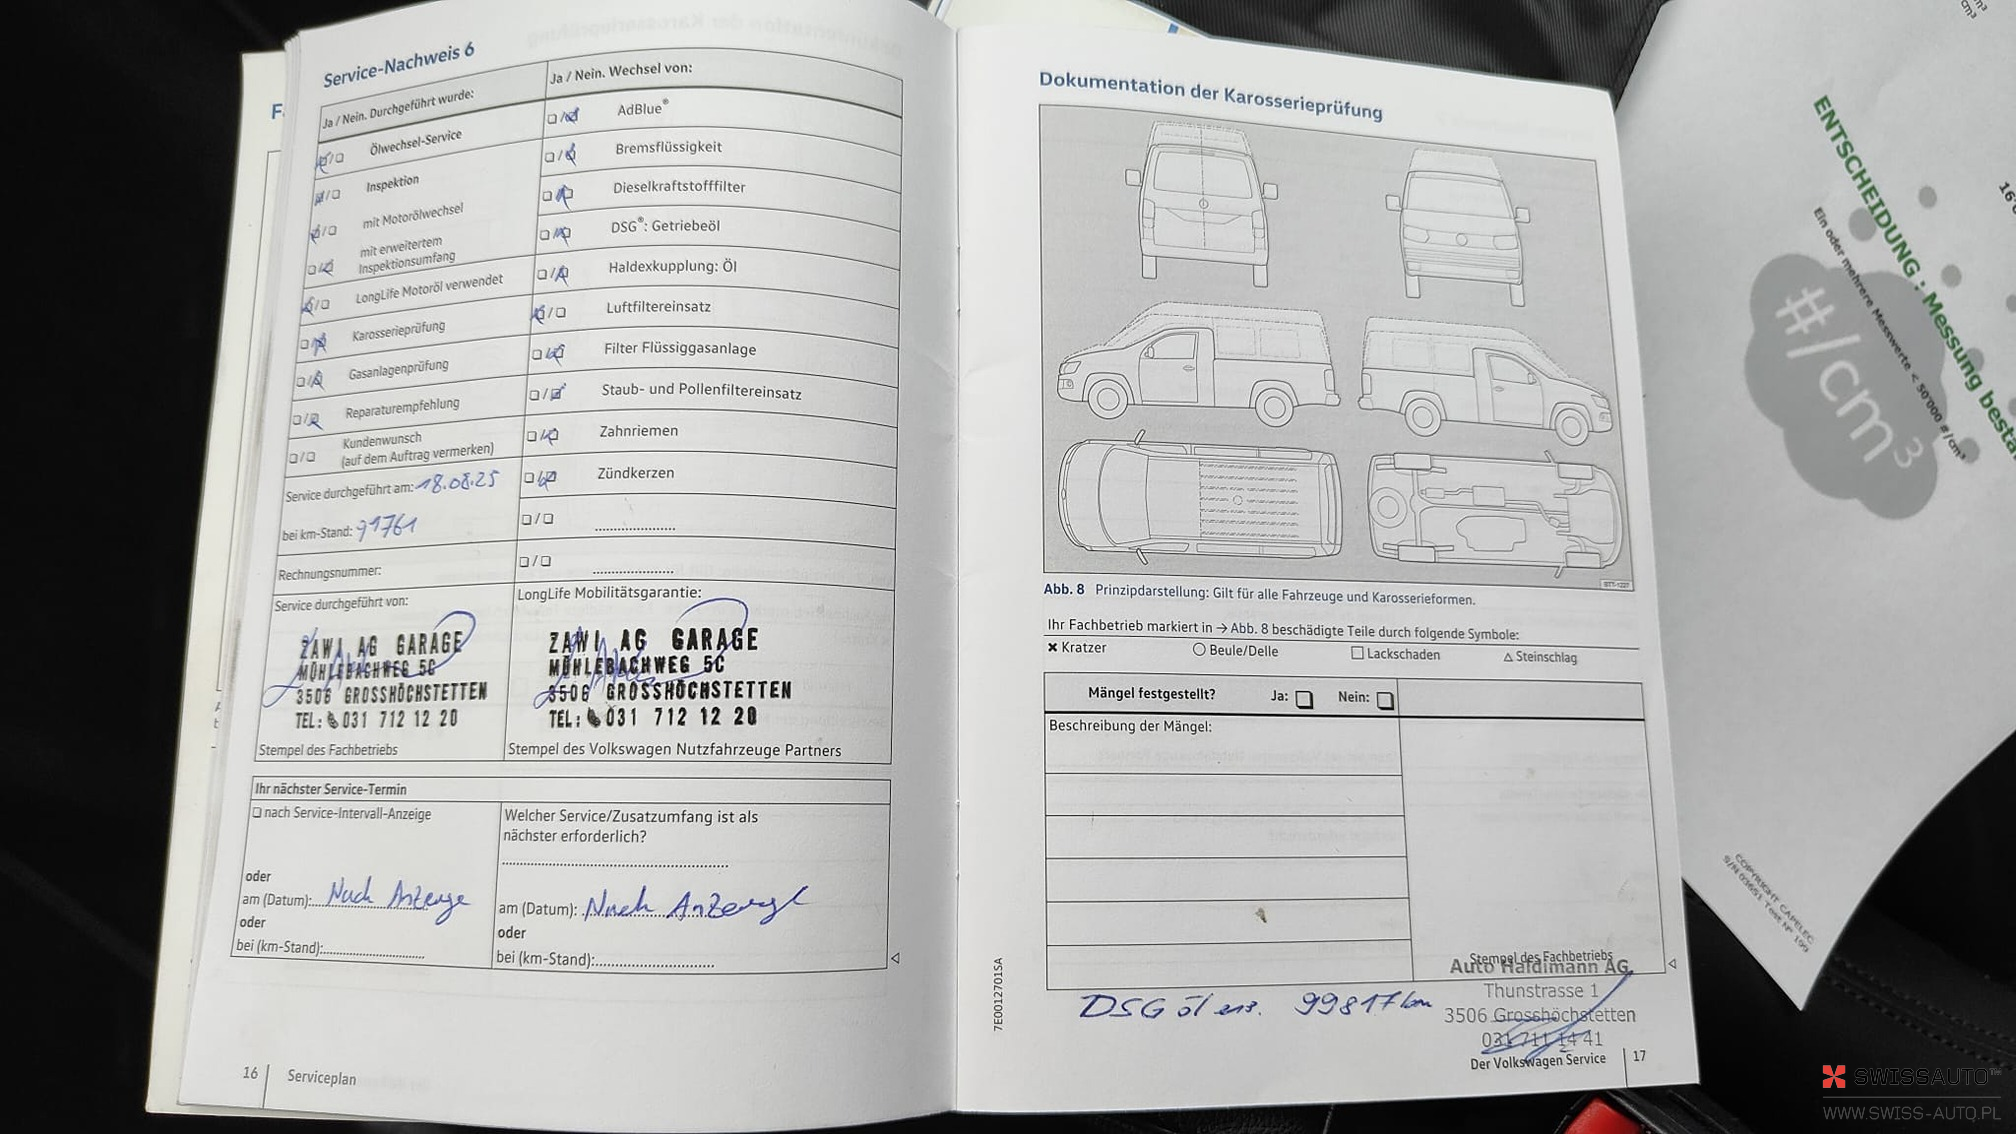 Service-Nachweis 6
Ja / Nein. Durchgeführt wurde:
Ölwechsel-Service
Inspektion
mit Motorölwechsel
mit erweitertem
Inspektionsumfang
LongLife Motoröl verwendet
Karosserieprüfung
Gasanlagenprüfung
Reparaturempfehlung
Kundenwunsch
(auf dem Auftrag vermerken)
Service durchgeführt am: 18.08.25
bei km-Stand: 91761
Rechnungsnummer:
Ja / Nein. Wechsel von:
AdBlue®
Bremsflüssigkeit
Dieselkraftstofffilter
DSG®: Getriebeöl
Haldexkupplung: Öl
Luftfiltereinsatz
Filter Flüssiggasanlage
Staub- und Pollenfiltereinsatz
Zahnriemen
Zündkerzen
Service durchgeführt von:
ZAWI AG GARAGE
MÜHLEBACHWEG 5C
3506 GROSSHÖCHSTETTEN
TEL: 031 712 12 20
Stempel des Fachbetriebs
LongLife Mobilitätsgarantie:
ZAWI AG GARAGE
MÜHLEBACHWEG 5C
3506 GROSSHÖCHSTETTEN
TEL: 031 712 12 20
Stempel des Volkswagen Nutzfahrzeuge Partners
Ihr nächster Service-Termin
nach Service-Intervall-Anzeige
oder
am (Datum): Nach Anzeige
oder
bei (km-Stand):
Welcher Service/Zusatzumfang ist als
nächster erforderlich?
am (Datum): Nach Anzeige
oder
bei (km-Stand):
16 Serviceplan
Dokumentation der Karosserieprüfung
Abb. 8 Prinzipdarstellung: Gilt für alle Fahrzeuge und Karosserieformen.
Ihr Fachbetrieb markiert in → Abb. 8 beschädigte Teile durch folgende Symbole:
Kratzer Beule/Delle Lackschaden Steinschlag
Mängel festgestellt? Ja: Nein:
Beschreibung der Mängel:
Stempel des Fachbetriebs
Auto Haldimann AG
Thunstrasse 1
3506 Grosshöchstetten
031 711 14 41
DSG öl ers. 99817 km
7E0012701SA
Der Volkswagen Service 17
ENTSCHEIDUNG : Messung
Ein oder mehrere Messwerte < 50'000 #/cm³
#/cm³
COPYRIGHT CAPELEC
SWISSAUTO™
WWW.SWISS-AUTO.PL